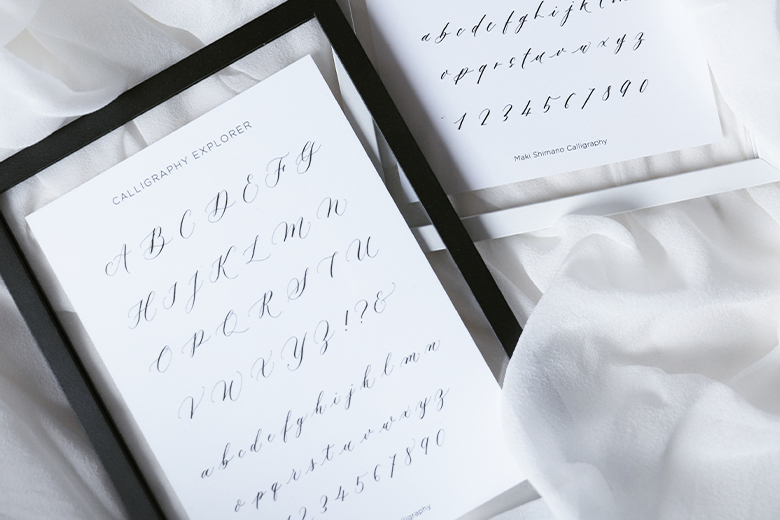 CALLIGRAPHY EXPLORER
A B C D E F G
H I J K L M N
O P Q R S T U
V W X Y Z ! ? &
a b c d e f g h i j k l m n
o p q r s t u v w x y z
1 2 3 4 5 6 7 8 9 0
a b c d e f g h i j k l m
o p q r s t u v w x y z
1 2 3 4 5 6 7 8 9 0
Maki Shimano Calligraphy